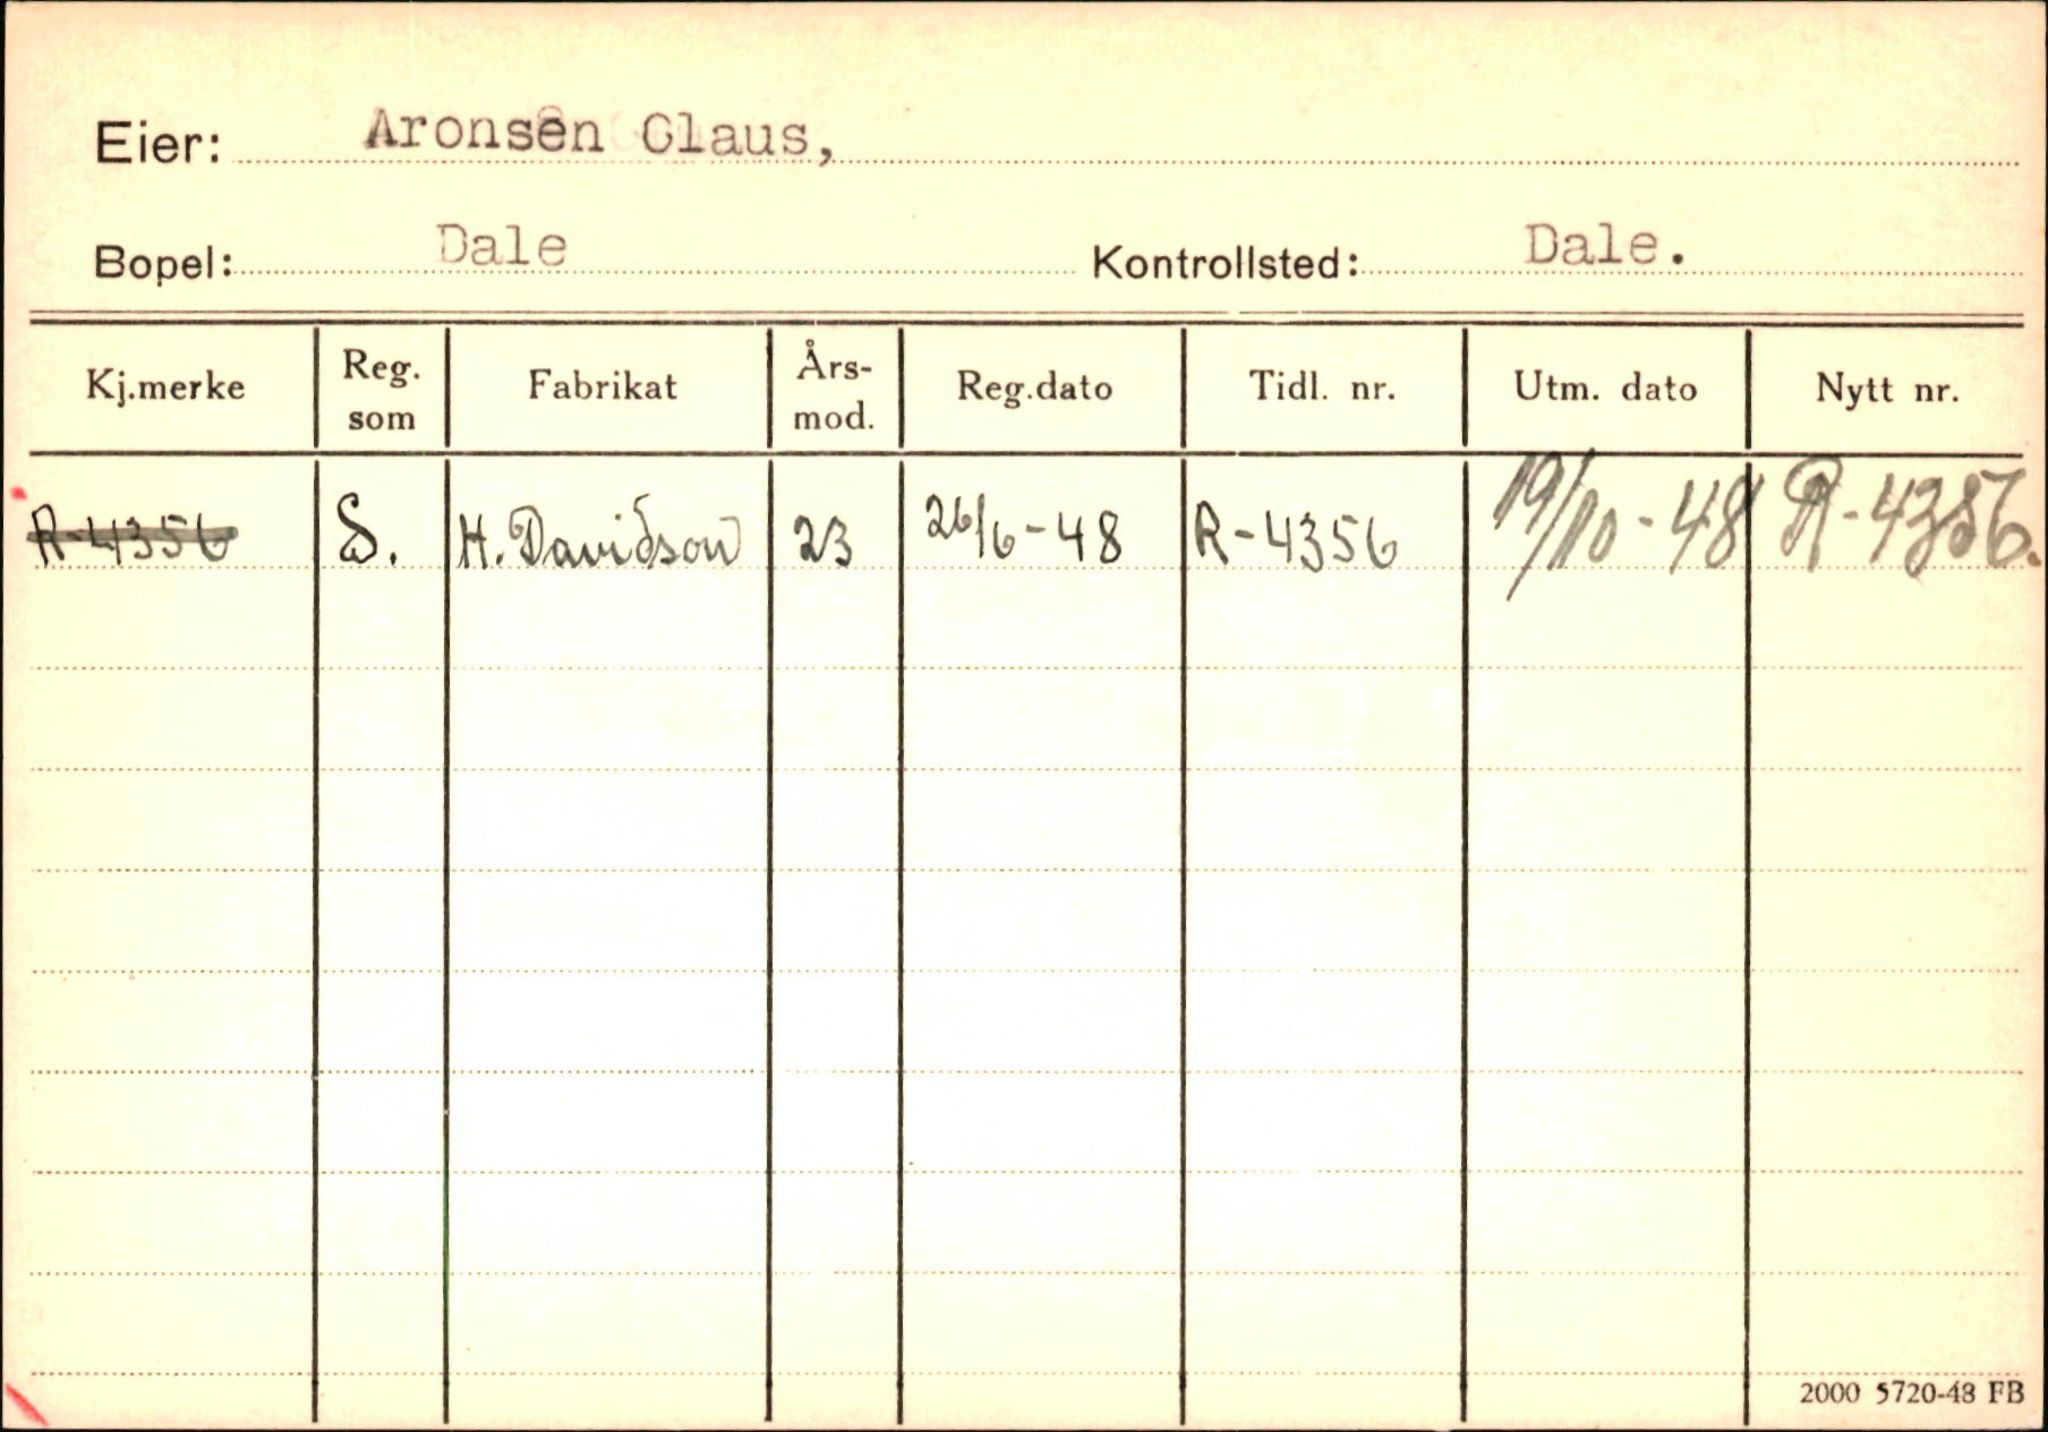 Eier: Aronsen Claus,
Bopel: Dale Kontrollsted: Dale.
Kj.merke Reg. som Fabrikat Års- mod. Reg.dato Tidl. nr. Utm. dato Nytt nr.
R-4356 S. H. Davidson 23 26/6-48 R-4356 19/10-48 R-4356.
2000 5720-48 FB